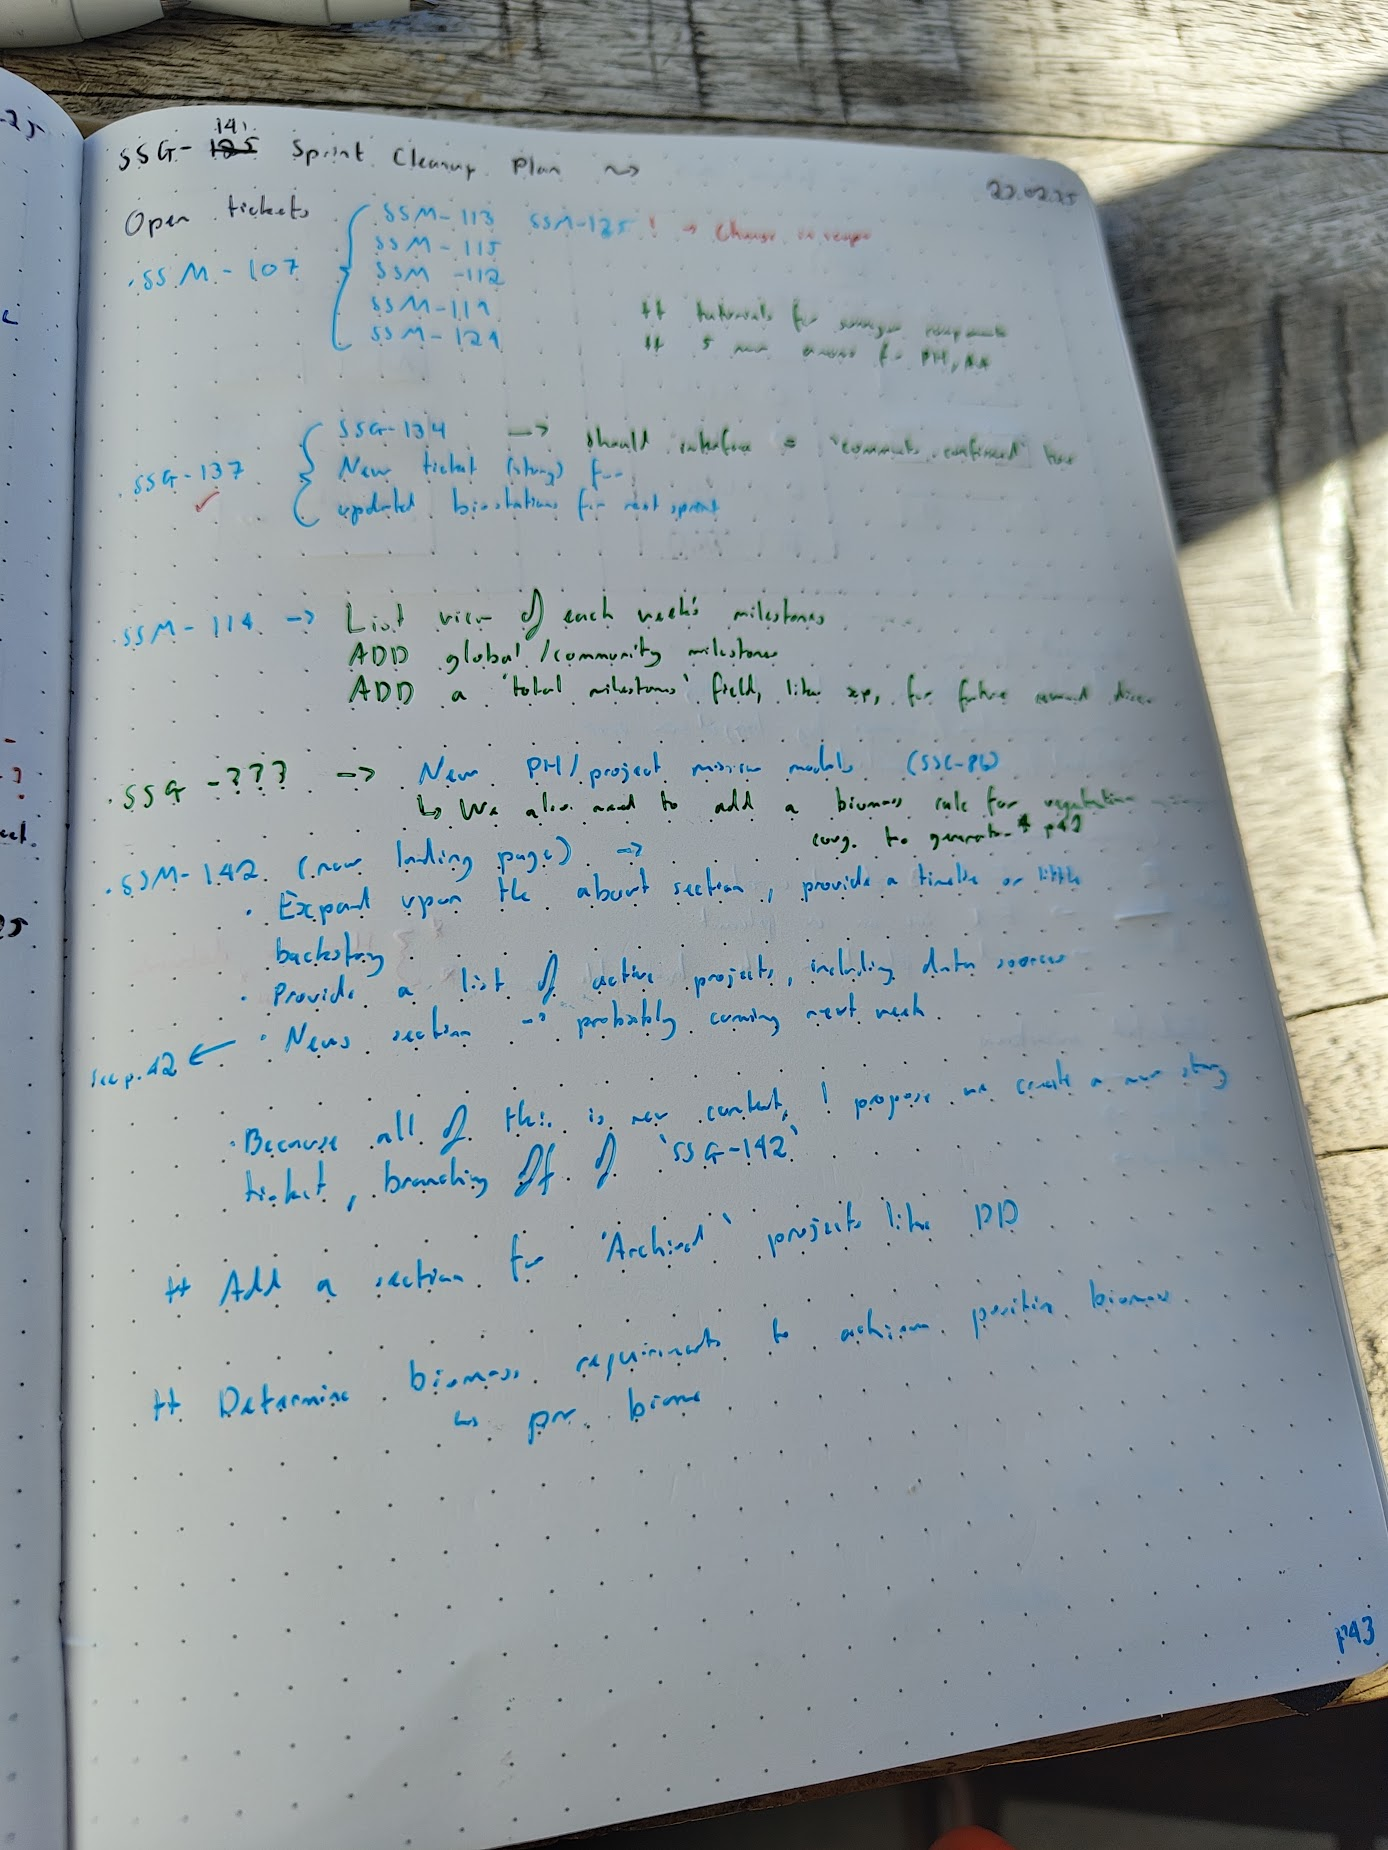 SSG- 141 Sprint Cleanup Plan
Open tickets
SSM-113 SSM-125 ! → Change in scope
SSM-115
.SSM-107 SSM-112
SSM-119
SSM-129
++ tutorials for
++ 5 new for PH,
SSG-134 → should interface "confirmed"
SSG-137 New ticket (story) for
updated biostations for next sprint
SSM-114 → List view of each week's milestones
ADD global/community milestones
ADD a 'total milestones' field, like xp, for future reward
.SSG-??? → New PH/project mission models
↳ We also need to add a biomass rule for vegetation
to p42
.SSM-142 (new landing page) →
· Expand upon the about section, provide a timeline or little
backstory
· Provide a list of active projects, including data sources
see p.42 ← · News section → probably coming next week
· Because all of this is new content, I propose we create a new story
ticket, branching off of 'SSG-142'
++ Add a section for 'Archived' projects like DD
++ Determine biomass requirements to achieve positive biomass
↳ pr. biome
p43